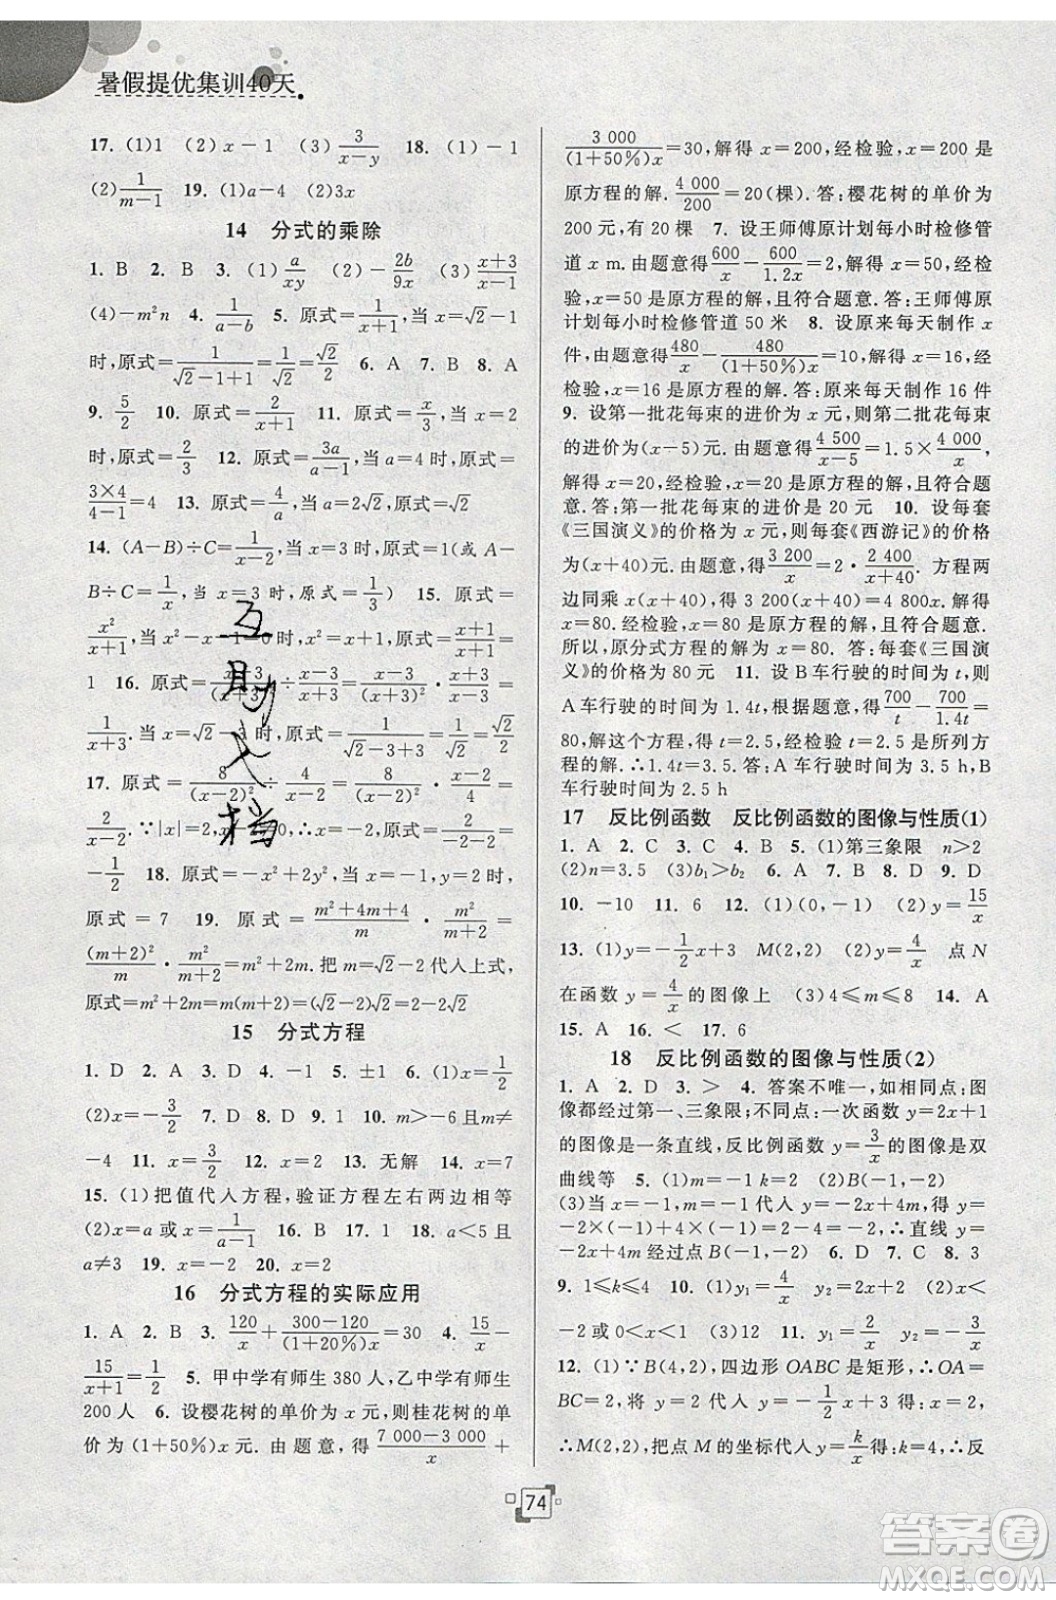 暑假提优集训40天
17. (1)1 (2)x－1 (3)3/(x－y) 18. (1)－1
(2)1/(m－1) 19. (1)a－4 (2)3x
14 分式的乘除
1. B 2. B 3. (1)a/(xy) (2)－2b/(9x) (3)(x＋3)/(x－1)
(4)－m²n 4. 1/(a－b) 5. 原式＝1/(x＋1),当 x＝√2－1
时,原式＝1/(√2－1＋1)＝1/√2＝√2/2 6. A 7. B 8. A
9. 5/2 10. 原式＝2/(x＋1) 11. 原式＝x/3,当 x＝2
时,原式＝2/3 12. 原式＝3a/(a－1),当 a＝4 时,原式＝
(3×4)/(4－1)＝4 13. 原式＝a/2,当 a＝2√2时,原式＝√2
14. (A－B)÷C＝1/(x－2),当 x＝3 时,原式＝1(或 A－
B÷C＝1/x,当 x＝3 时,原式＝1/3) 15. 原式＝
x²/(x＋1),当 x²－x－1＝0 时,原式＝(x＋1)/(x＋1)＝
1 16. 原式＝(x＋3)/(x＋3)²÷(x－3)/(x＋3)＝(x－3)/(x＋3)²·(x＋3)/(x－3)＝
1/(x＋3). 当 x＝√2－3 时,原式＝1/(√2－3＋3)＝1/√2＝√2/2
17. 原式＝8/(x－2)²÷4/(x－2)＝8/(x－2)²·(x－2)/4＝
2/(x－2). ∵|x|＝2,x－2≠0, 原式＝2/(－2－2)＝
－1/2 18. 原式＝－x²＋2y²,当 时,
原式＝7 19. 原式＝(m²＋4m＋4)/m·m²/(m＋2)＝
(m＋2)²/m·m²/(m＋2)＝m²＋2m. 把 m＝√2－2 代人上式,
原式＝m²＋2m＝m(m＋2)＝(√2－2)×√2＝2－2√2
15 分式方程
1. D 2. A 3. D 4. －1 5. ±1 6. (1)x＝1/2
(2)x＝－3/2 7. B 8. C 9. 1 10. m＞－6且m≠
－4 11. x＝3/2 12. x＝2 13. 无解 14. x＝7
15. (1)把值代人方程,验证方程左右两边相等
(2)x＝a 或 x＝1/(a－1) 16. B 17. 1 18. a＜5 且
a≠3 19. x＝－2 20. x＝2
16 分式方程的实际应用
1. A 2. B 3. 120/x＋(300－120)/((1＋20％)x)＝30 4. 15/x－
15/(x＋1)＝1/2 5. 甲中学有师生 380 人,乙中学有师生
200 人 6. 设樱花树的单价为 x 元,则桂花树的单
价为(1＋50％)x 元. 由题意,得(7 000－3 000)/x＋
3 000/((1＋50％)x)＝30,解得 x＝200,经检验,x＝200 是
原方程的解. 4 000/200＝20(棵). 答:樱花树的单价为
200 元,有 20 棵 7. 设王师傅原计划每小时检修管
道 x m. 由题意得600/x－600/(1.2x)＝2,解得 x＝50,经检
验,x＝50 是原方程的解,且符合题意. 答:王师傅原
计划每小时检修管道 50 米 8. 设原来每天制作 x
件,由题意得480/x－480/((1＋50％)x)＝10,解得 x＝16,经
检验,x＝16 是原方程的解. 答:原来每天制作 16 件
9. 设第一批花每束的进价为 x 元,则第二批花每束
的进价为(x－5)元. 由题意得4 500/(x－5)＝1.5×4 000/x,
解得 x＝20. 经检验,x＝20 是原方程的解,且符合
题意. 答:第一批花每束的进价是 20 元 10. 设每套
《三国演义》的价格为 x 元,则每套《西游记》的价格
为(x＋40)元. 由题意,得3 200/x＝2·2 400/(x＋40). 方程两
边同乘 x(x＋40),得3 200(x＋40)＝4 800x,解得
x＝80. 经检验,x＝80 是原方程的解,且符合题意.
所以,原分式方程的解为 x＝80. 答:每套《三国演
义》的价格为 80 元 11. 设 B 车行驶的时间为 t,则
A 车行驶的时间为 1.4t,根据题意,得700/t－700/(1.4t)＝
80,解这个方程,得 t＝2.5,经检验 t＝2.5 是所列方
程的解. ∴1.4t＝3.5. 答:A 车行驶时间为 3.5 h,B
车行驶时间为 2.5 h
17 反比例函数 反比例函数的图像与性质(1)
1. A 2. C 3. C 4. B 5. (1)第三象限 n＞2
(2)n＝3.5 (3)b₁＞b₂ 6. A 7. B 8. D 9. D
10. －10 11. 6 12. (1)(0,－1) (2)y＝15/x
13. (1)y＝－1/2x＋3 M(2,2) (2)y＝4/x 点 N
在函数 y＝4/x的图像上 (3)4≤m≤8 14. A
15. A 16. ＜ 17. 6
18 反比例函数的图像与性质(2)
1. A 2. D 3. ＞ 4. 答案不唯一,如相同点:图
像都经过第一、三象限;不同点:一次函数 y＝2x＋1
的图像是一条直线,反比例函数 y＝3/x的图像是双
曲线等 5. (1)m＝1 (2)B(－1,－2)
(3)当 x＝－1,m＝1 代人 y＝－2x＋4m,得 y＝
－2×(－1)＋4×(－1)＝－2,∴直线 y＝－2x＋
4m 经过点 B(－1,－2) 6. D 7. C 8. 3
9. 1≤k≤4 10. (1)y₁＝4/x y₂＝2x＋2 (2)x＜
－2 或 0＜x＜1 (3)12 11. y₁＝2/x y₂＝x＋1
12. (1)∵B(4,2),四边形 OABC 是矩形,∴OA＝
BC＝2,将 y＝2 代人 y＝－1/2x＋3 得:x＝2,
∴M(2,2),把点 M 的坐标代人 y＝k/x得:k＝4,∴反
74
互助文档
答案圈
MXQE.COM